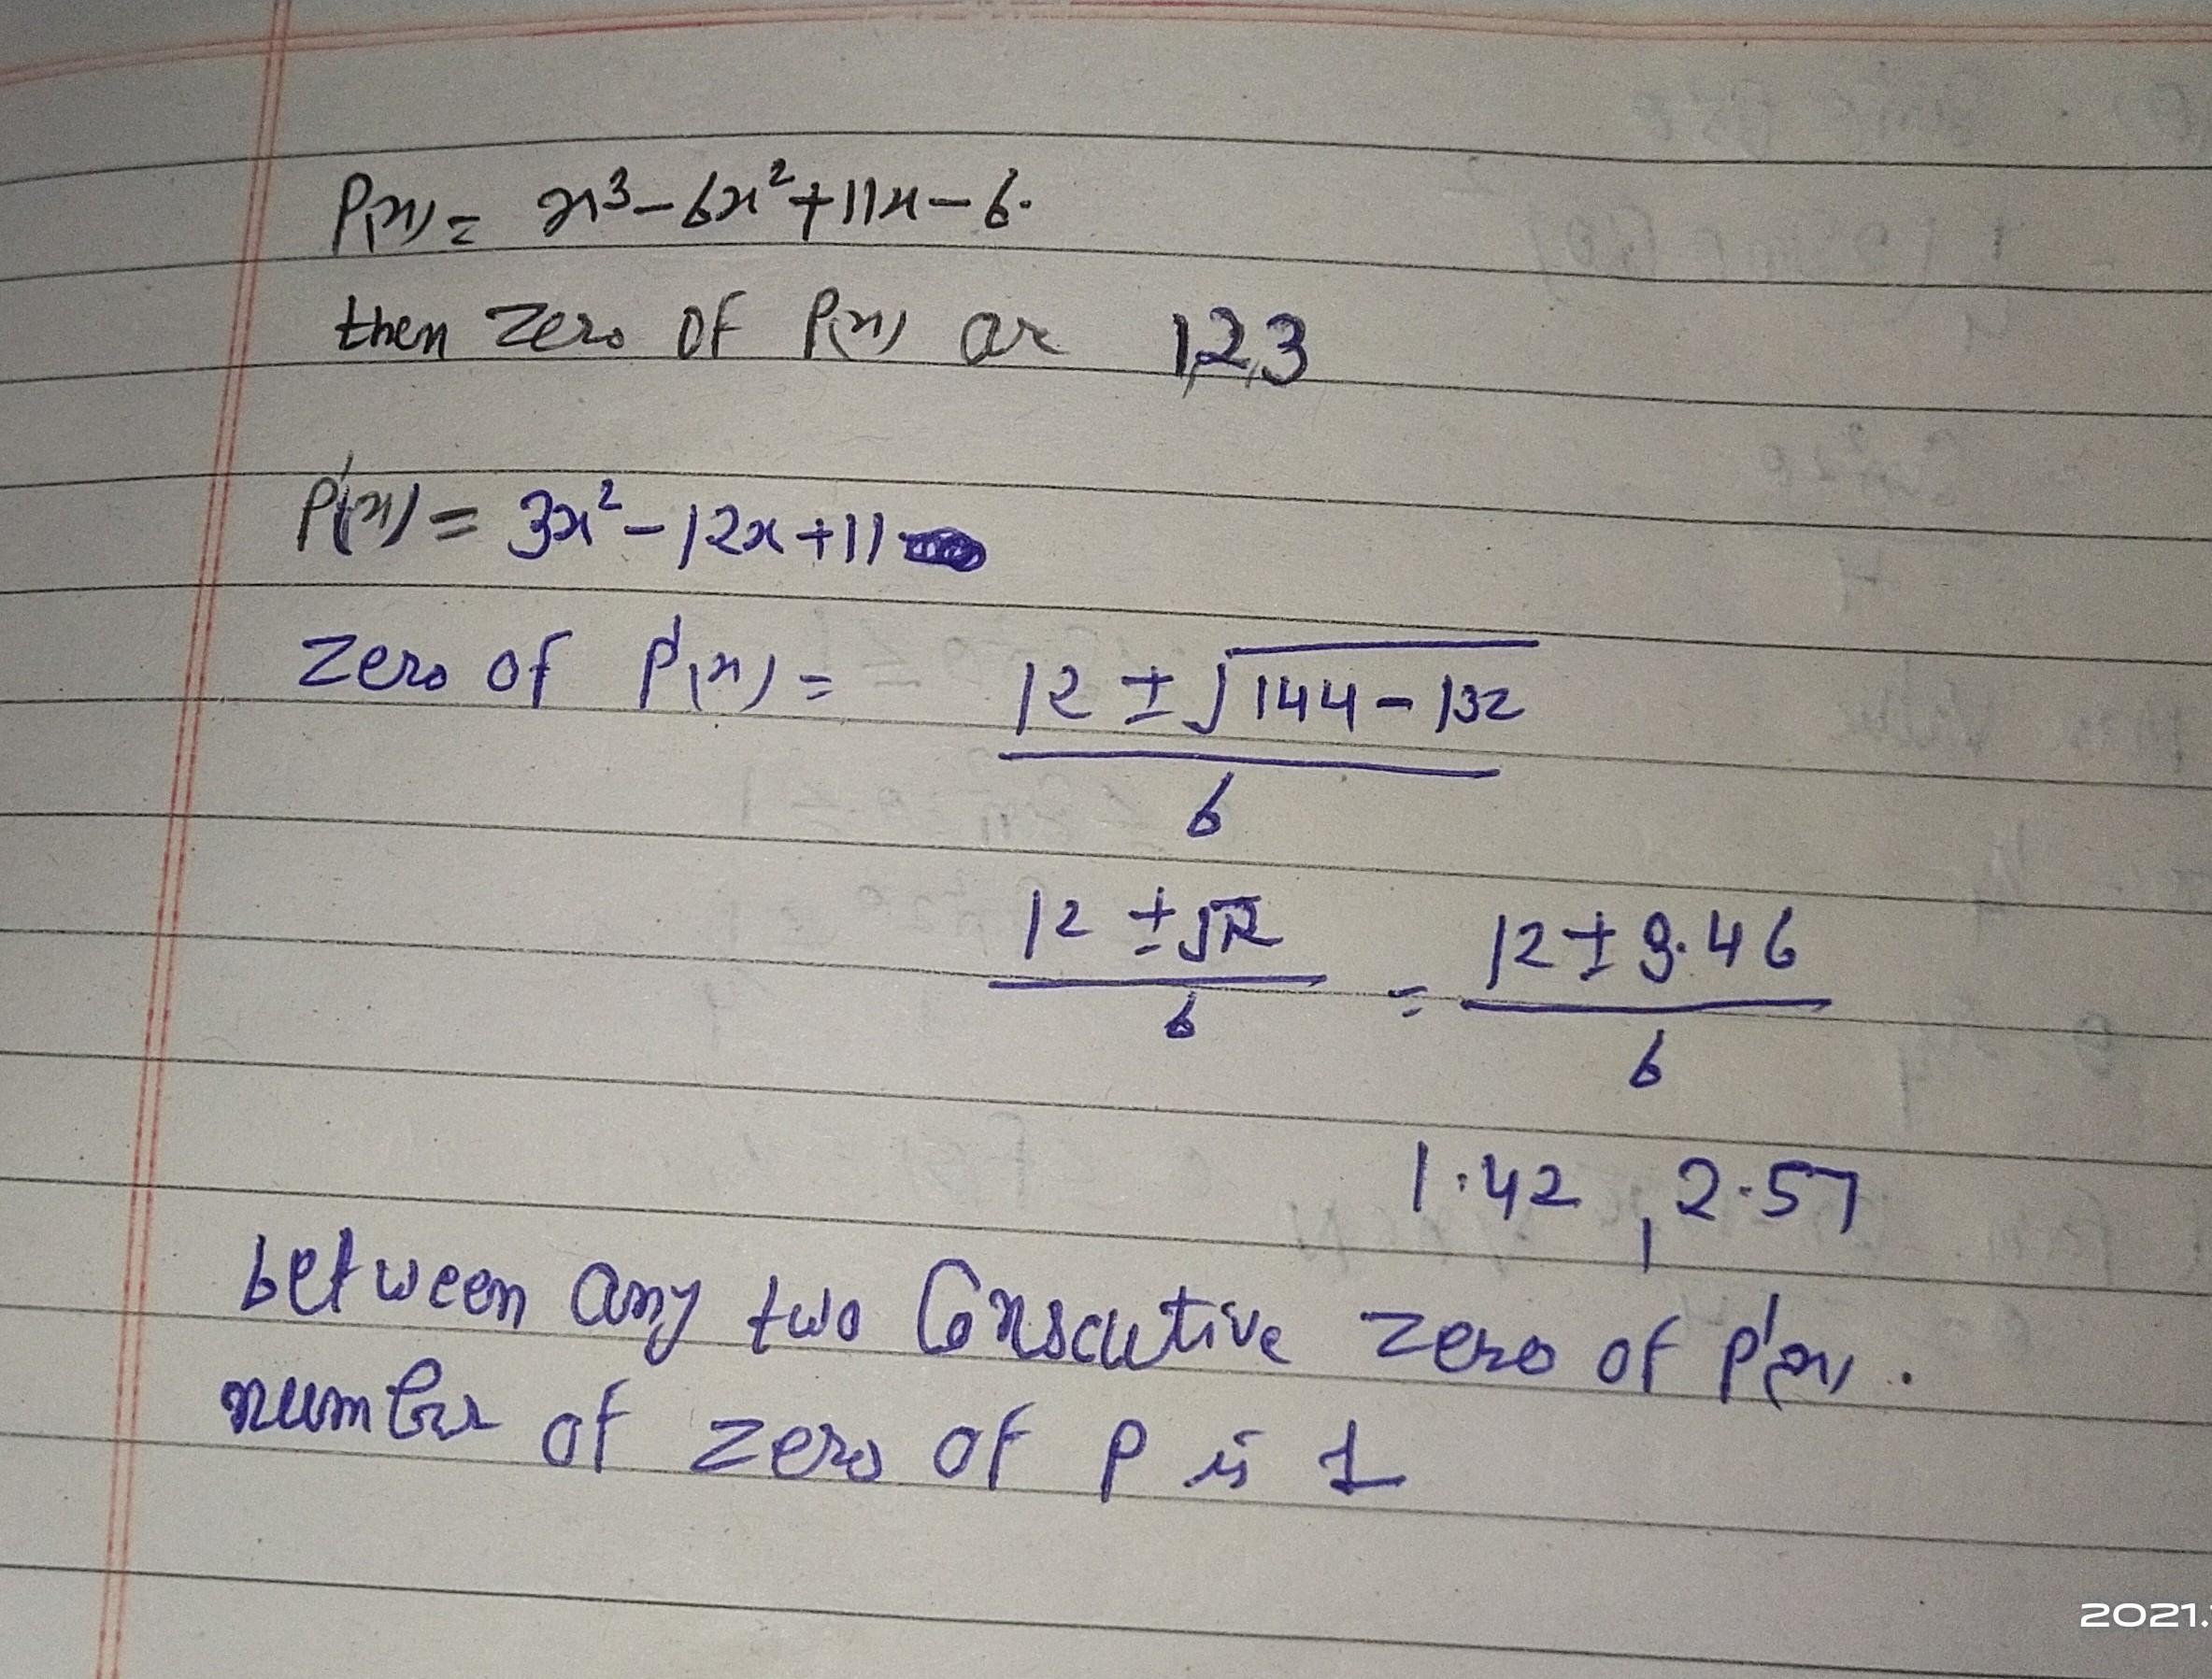 P(x) = x³ - 6x² + 11x - 6.
then zero of P(x) are 1,2,3
P'(x) = 3x² - 12x + 11
zero of P'(x) = 12 ± √144 - 132
6
12 ± √12 = 12 ± 3.46
6 6
1.42 , 2.57
between any two Conscutive zero of P'(x).
number of zero of P is 1
2021.